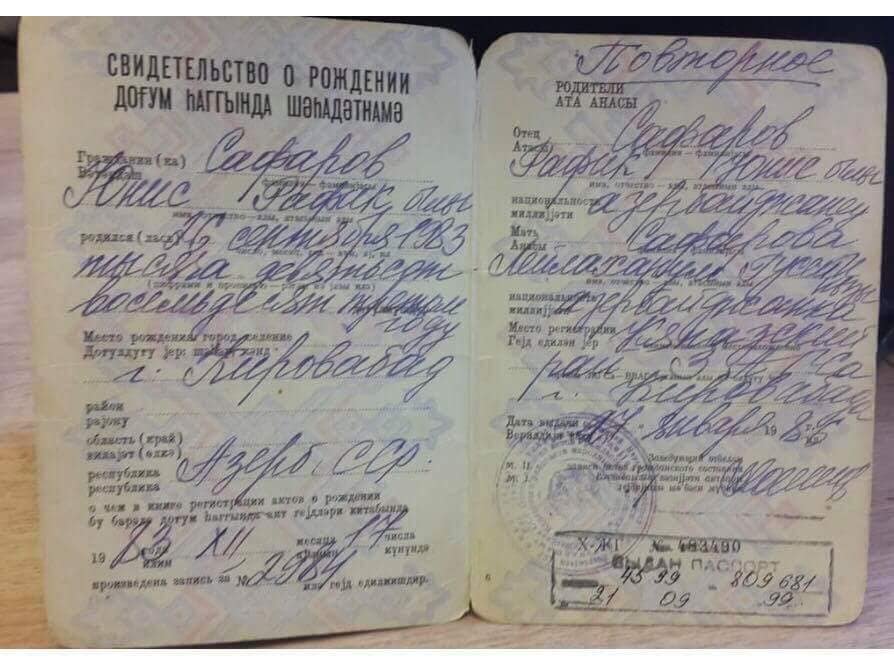 СВИДЕТЕЛЬСТВО О РОЖДЕНИИ
ДОҒУМ ҺАГГЫНДА ШӘҺАДӘТНАМӘ
Гражданин (ка) Сафаров
Вәтәндаш
фамилия — фамилијасы
Юнис Рафик оглы
имя, отчество — ады, атасынын ады
родился (лась) 16 сентября 1983
тысяча девятьсот
восемьдесят третьем
году
Место рождения: город, селение
Доғулдуғу јер: шәһәр, кәнд
г. Кировабад
район
рајону
область (край)
вилајәт (өлкә)
республика
республика
Азерб. ССР.
о чем в книге регистрации актов о рождении
бу барәдә доғум һаггында акт гејдләри китабында
19 83 года XII месяца 17 числа
илин ајынын күнүндә
произведена запись за № 2984 илә гејд едилмишдир.
Повторное
РОДИТЕЛИ
АТА АНАСЫ
Отец Сафаров
Атасы
фамилия — фамилијасы
Рафик Юнис оглы
имя, отчество — ады, атасынын ады
национальность азербайджанец
миллијјәти
Мать Сафарова
Анасы
имя, отчество — ады, атасынын ады
национальность азербайджанка
миллијјәти
Место регистрации
Гејд едилән јер
г. Кировабада
Дата выдачи 17 января 19
Заведующий отделом
записи актов гражданского состояния
М. П.
М. Ј.
Х-ЖГ № 483490
ВЫДАН ПАСПОРТ
45 99 809681
21 09 99
6